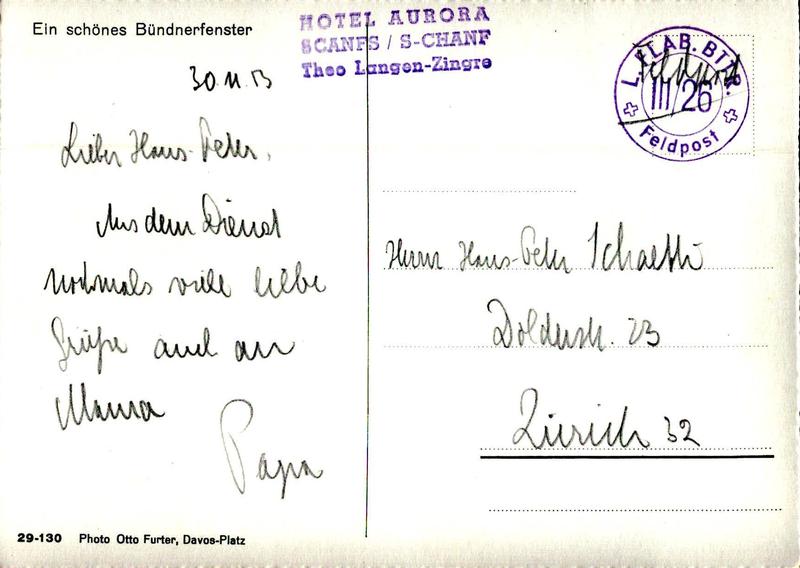 Ein schönes Bündnerfenster
HOTEL AURORA
SCANFS / S-CHANF
Theo Langen-Zingre
L. FLAB. BTTR.
Feldpost
III/26
Feldpost
30.11.53
Lieber Hans-Peter,
Aus dem Dienst
nochmals viele liebe
Grüße auch an
Mama
Papa
Herrn Hans-Peter Schaetti
Dolderstr. 23
Zürich 32
29-130 Photo Otto Furter, Davos-Platz